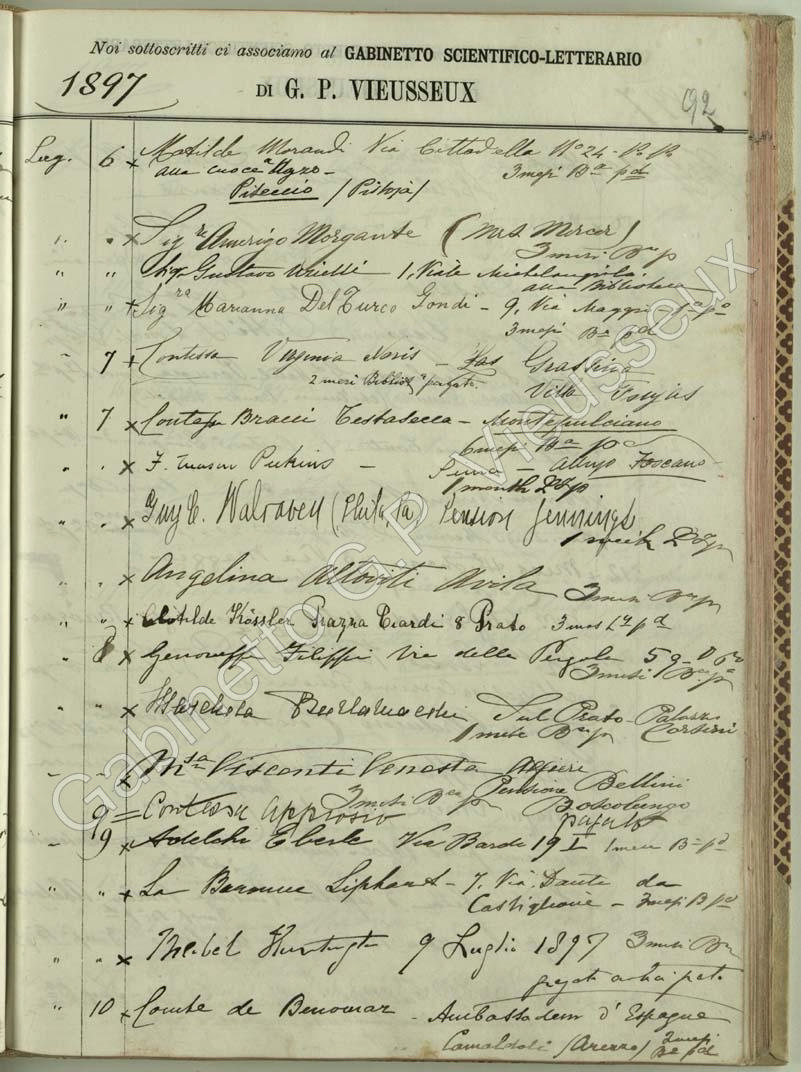 Noi sottoscritti ci associamo al GABINETTO SCIENTIFICO-LETTERARIO
1897
DI G. P. VIEUSSEUX
92
Lug. 6 x Matilde Morandi Via Cittadella No 24 - Po Po
alla 3 mesi Ba pd
Piteccio / (Pistoja)
" " x Sigre Amerigo Morgante (Mrs Mercer)
3 mesi Bca p
" " Gustavo Uzielli 1, Viale Michelangiolo
alla Biblioteca
" " x Sigra Marianna Del Turco Gondi - 9, Via Maggio - 1o po
3 mesi Ba pd
" 7 x Contessa Virginia - Grassina
2 mesi Bibliota pagato. Villa
" 7 x Contessa Bracci Testasecca - Montepulciano
6 mesi Ba pd
" " x F. Mason Perkins - Siena - Albergo Toscano
1 month p
" " x Guy C. Walraven (Phila, Pa) Pension Jennings
1 week
" " x Angelina Altoviti Avila 3 mesi Bca p
" " x Clotilde Kössler Piazza Ciardi 8 Prato 3 mos pd
" 8 x Genoveffa Filippi Via della Pergola 59
3 mesi Bca pa
" " x Marchesa Burlamacchi Sul Prato - Palazzo
1 mese Bca p Corsini
" " x Msa Visconti Venosta Alfieri
Pensione Bellini
9 = Contessa Approsio 3 mesi Bca p
pagato
" 9 x Adelchi Eberle Via Bardi 19 I 1 mese Ba pd
" " x La Baronne Liphart - 7, Via Dante da
Castiglione - 3 mesi B pd
" " x Mabel Huntington 9 Luglio 1897 3 mesi Bca
" 10 x Comte de Benomar - Ambassadeur d'Espagne
Camaldoli (Arezzo) 2 mesi
Ba pd
Gabinetto G.P. Vieusseux